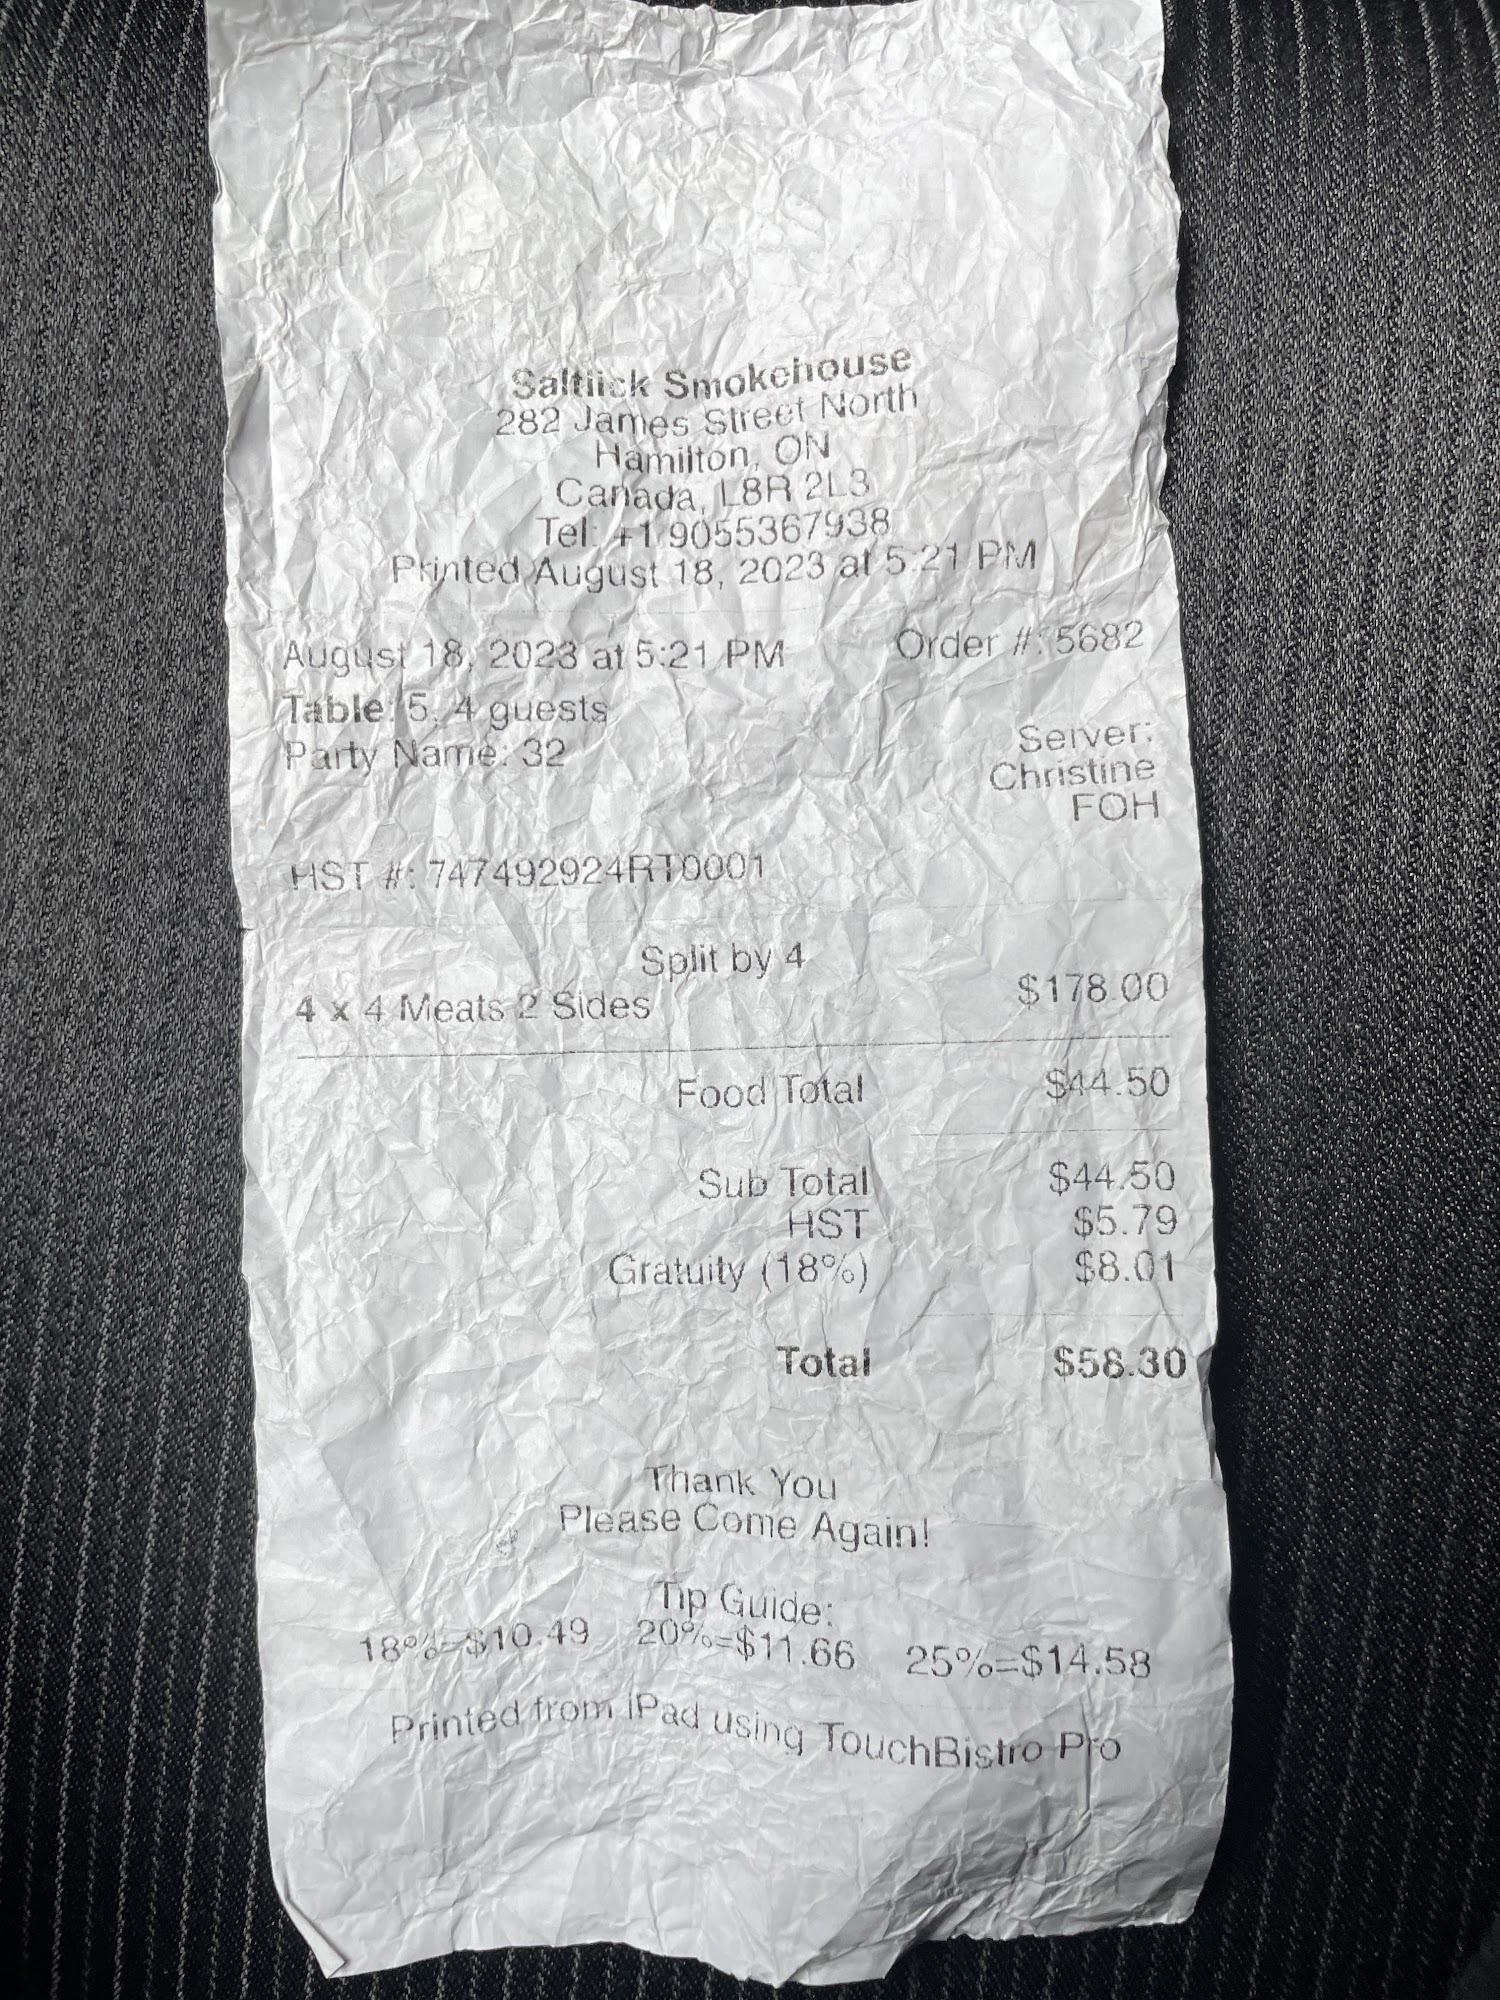 Saltlick Smokehouse
282 James Street North
Hamilton, ON
Canada, L8R 2L3
Tel: +1 9055367938
Printed August 18, 2023 at 5:21 PM
August 18, 2023 at 5:21 PM Order #: 5682
Table: 5, 4 guests
Party Name: 32
Server:
Christine
FOH
HST #: 747492924RT0001
Split by 4
4 x 4 Meats 2 Sides $178.00
Food Total $44.50
Sub Total $44.50
HST $5.79
Gratuity (18%) $8.01
Total $58.30
Thank You
Please Come Again!
Tip Guide:
18%=$10.49 20%=$11.66 25%=$14.58
Printed from iPad using TouchBistro Pro